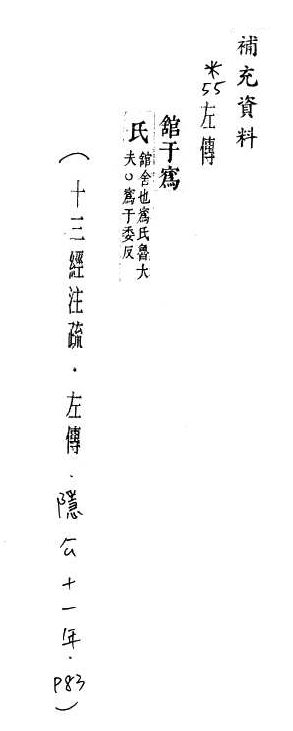 補充資料
*55左傳
館于寪
氏館舍也寪氏魯大
夫○寪于委反
(十三經注疏．左傳．隱公十一年．P83)